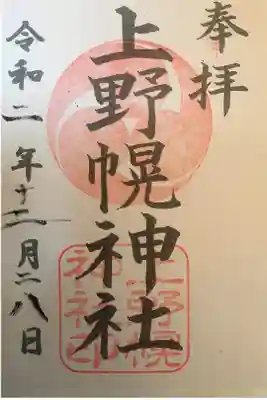 奉拝
上野幌神社
上野幌
神社印
令和二年十二月二八日